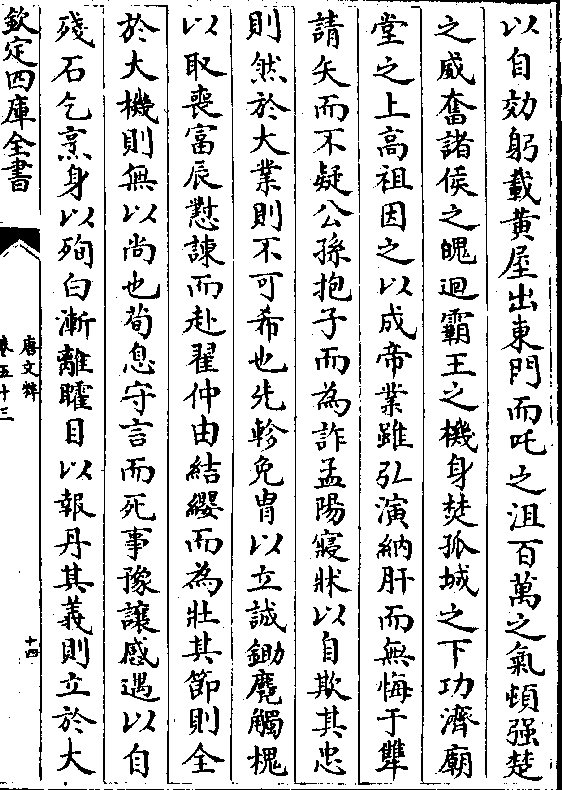 以自効躬載黄屋出東門而吒之沮百萬之氣頓强楚
之威奮諸侯之魄迴霸王之機身焚孤城之下功濟廟
堂之上高祖因之以成帝業雖弘演納肝而無悔于犫
請矢而不疑公孫抱子而為詐孟陽寢牀以自欺其忠
則然於大業則不可希也先軫免胄以立誠鋤麑觸槐
以取喪富辰懟諫而赴翟仲由結纓而為壯其節則全
於大機則無以尚也荀息守言而死事豫讓感遇以自
殘石乞烹身以殉白漸離矐目以報丹其義則立於大
欽定四庫全書
唐文粹
卷五十三
十四